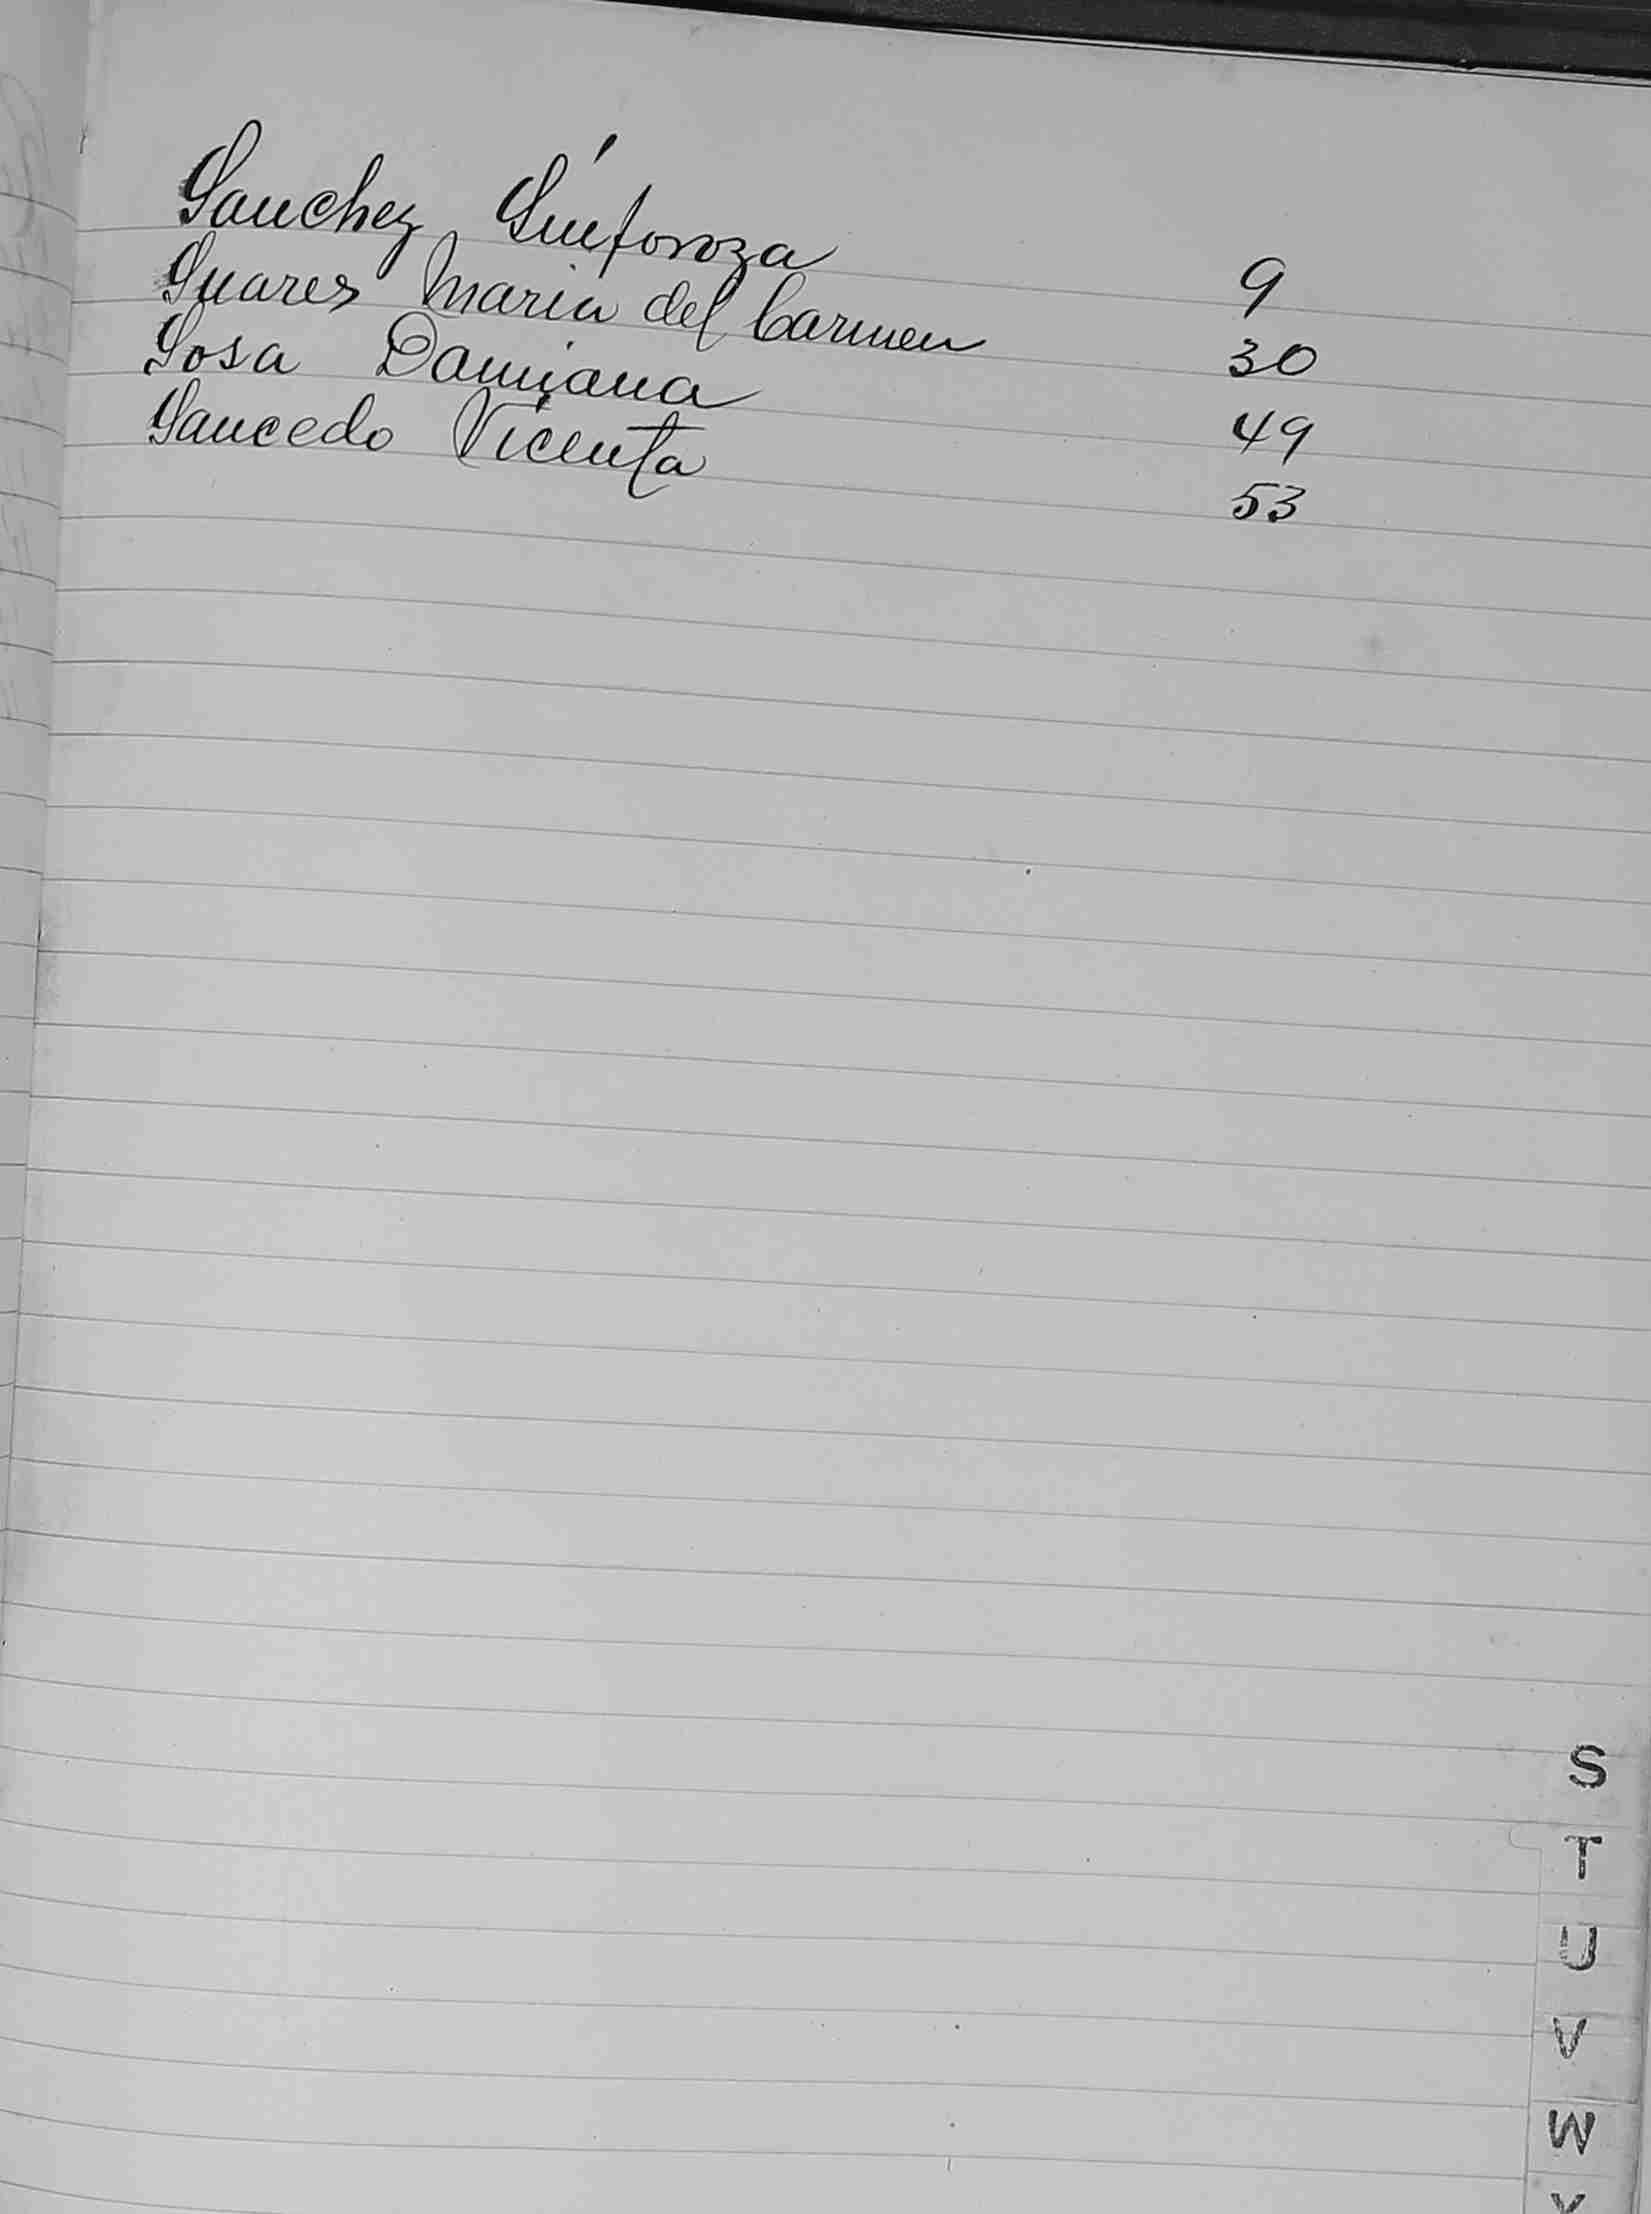 Sanchez Sinforoza 9
Suares Maria del Carmen 30
Sosa Damiana 49
Saucedo Vicenta 53
S
T
U
V
W